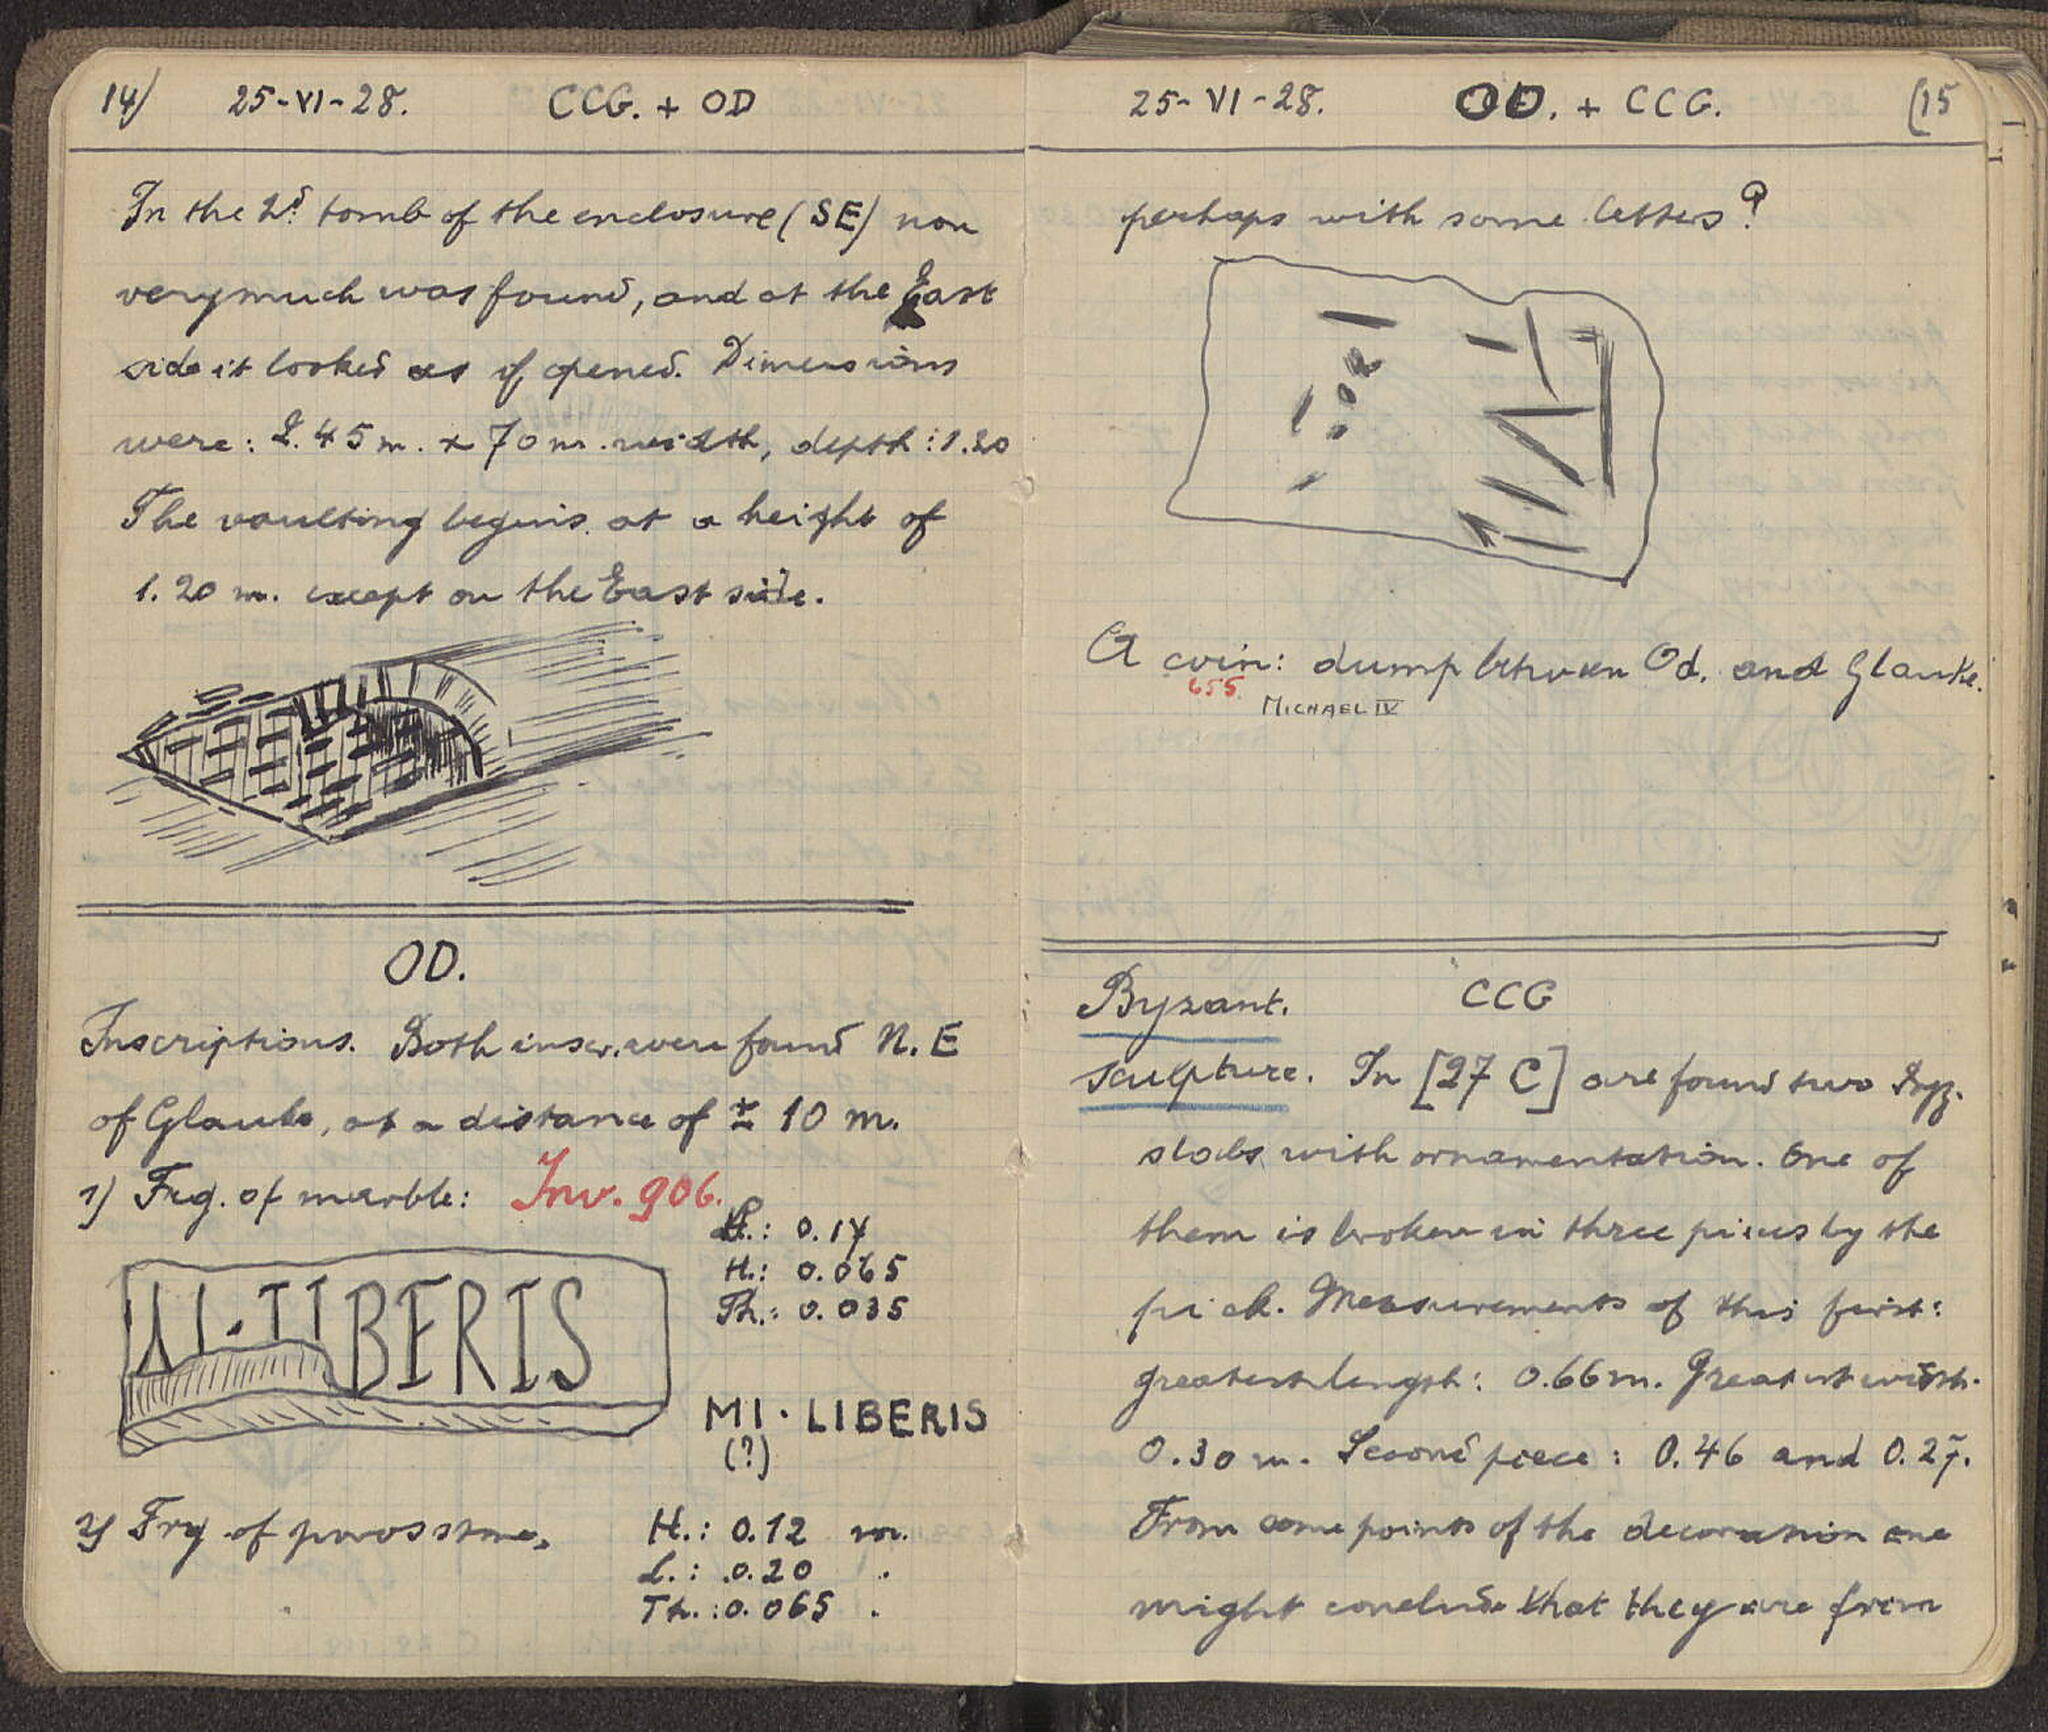 14) 25-VI-28. CCG. + OD
In the 2d tomb of the enclosure (SE) non
very much was found, and at the East
side it looked as if opened. Dimensions
were: 2.45 m. x 70 m. width, depth: 1.20
The vaulting begins at a height of
1.20 m. except on the East side.
OD.
Inscriptions. Both inscr. were found N.E
of Glauke, at a distance of ± 10 m.
1) Frg. of marble: Inv. 906.
L.: 0.14
H.: 0.065
Th.: 0.035
LIBERIS
MI. LIBERIS
(?)
2) Frg of poros stone.
H.: 0.12 m.
L.: 0.20 .
Th.: 0.065 .
25-VI-28. OD. + CCG. (15
perhaps with some letters?
A coin: dump between Od. and Glauke.
655.
MICHAEL IV
Byzant. CCG
sculpture. In [27 C] are found two byz.
slabs with ornamentation. One of
them is broken in three pieces by the
pick. Measurements of this first:
greatest length: 0.66 m. Greatest width.
0.30 m. Second piece: 0.46 and 0.27.
From some points of the decoration one
might conclude that they are from